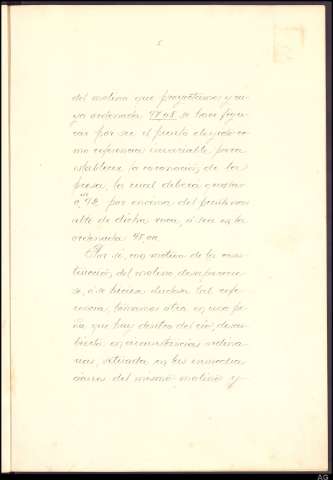 5
del molino que proyectamos y cu-
ya ordenada 47,08 se hace figu-
rar por ser el punto elegido co-
mo referencia invariable para
establecer la coronación de la
presa, la cual deberá quedar
a 0,92 por encima del punto
de dicha roca, ó sea en la
ordenada 48,00
Por si, con motivo de la cons-
trucción del molino, desaparecie-
se, ó se hiciese dudosa tal refe-
rencia, tomamos otra en una pe-
ña que hay dentro del río, descu-
bierta en circunstancias ordina-
rias, situada en las inmedia-
ciones del mismo molino y
AG